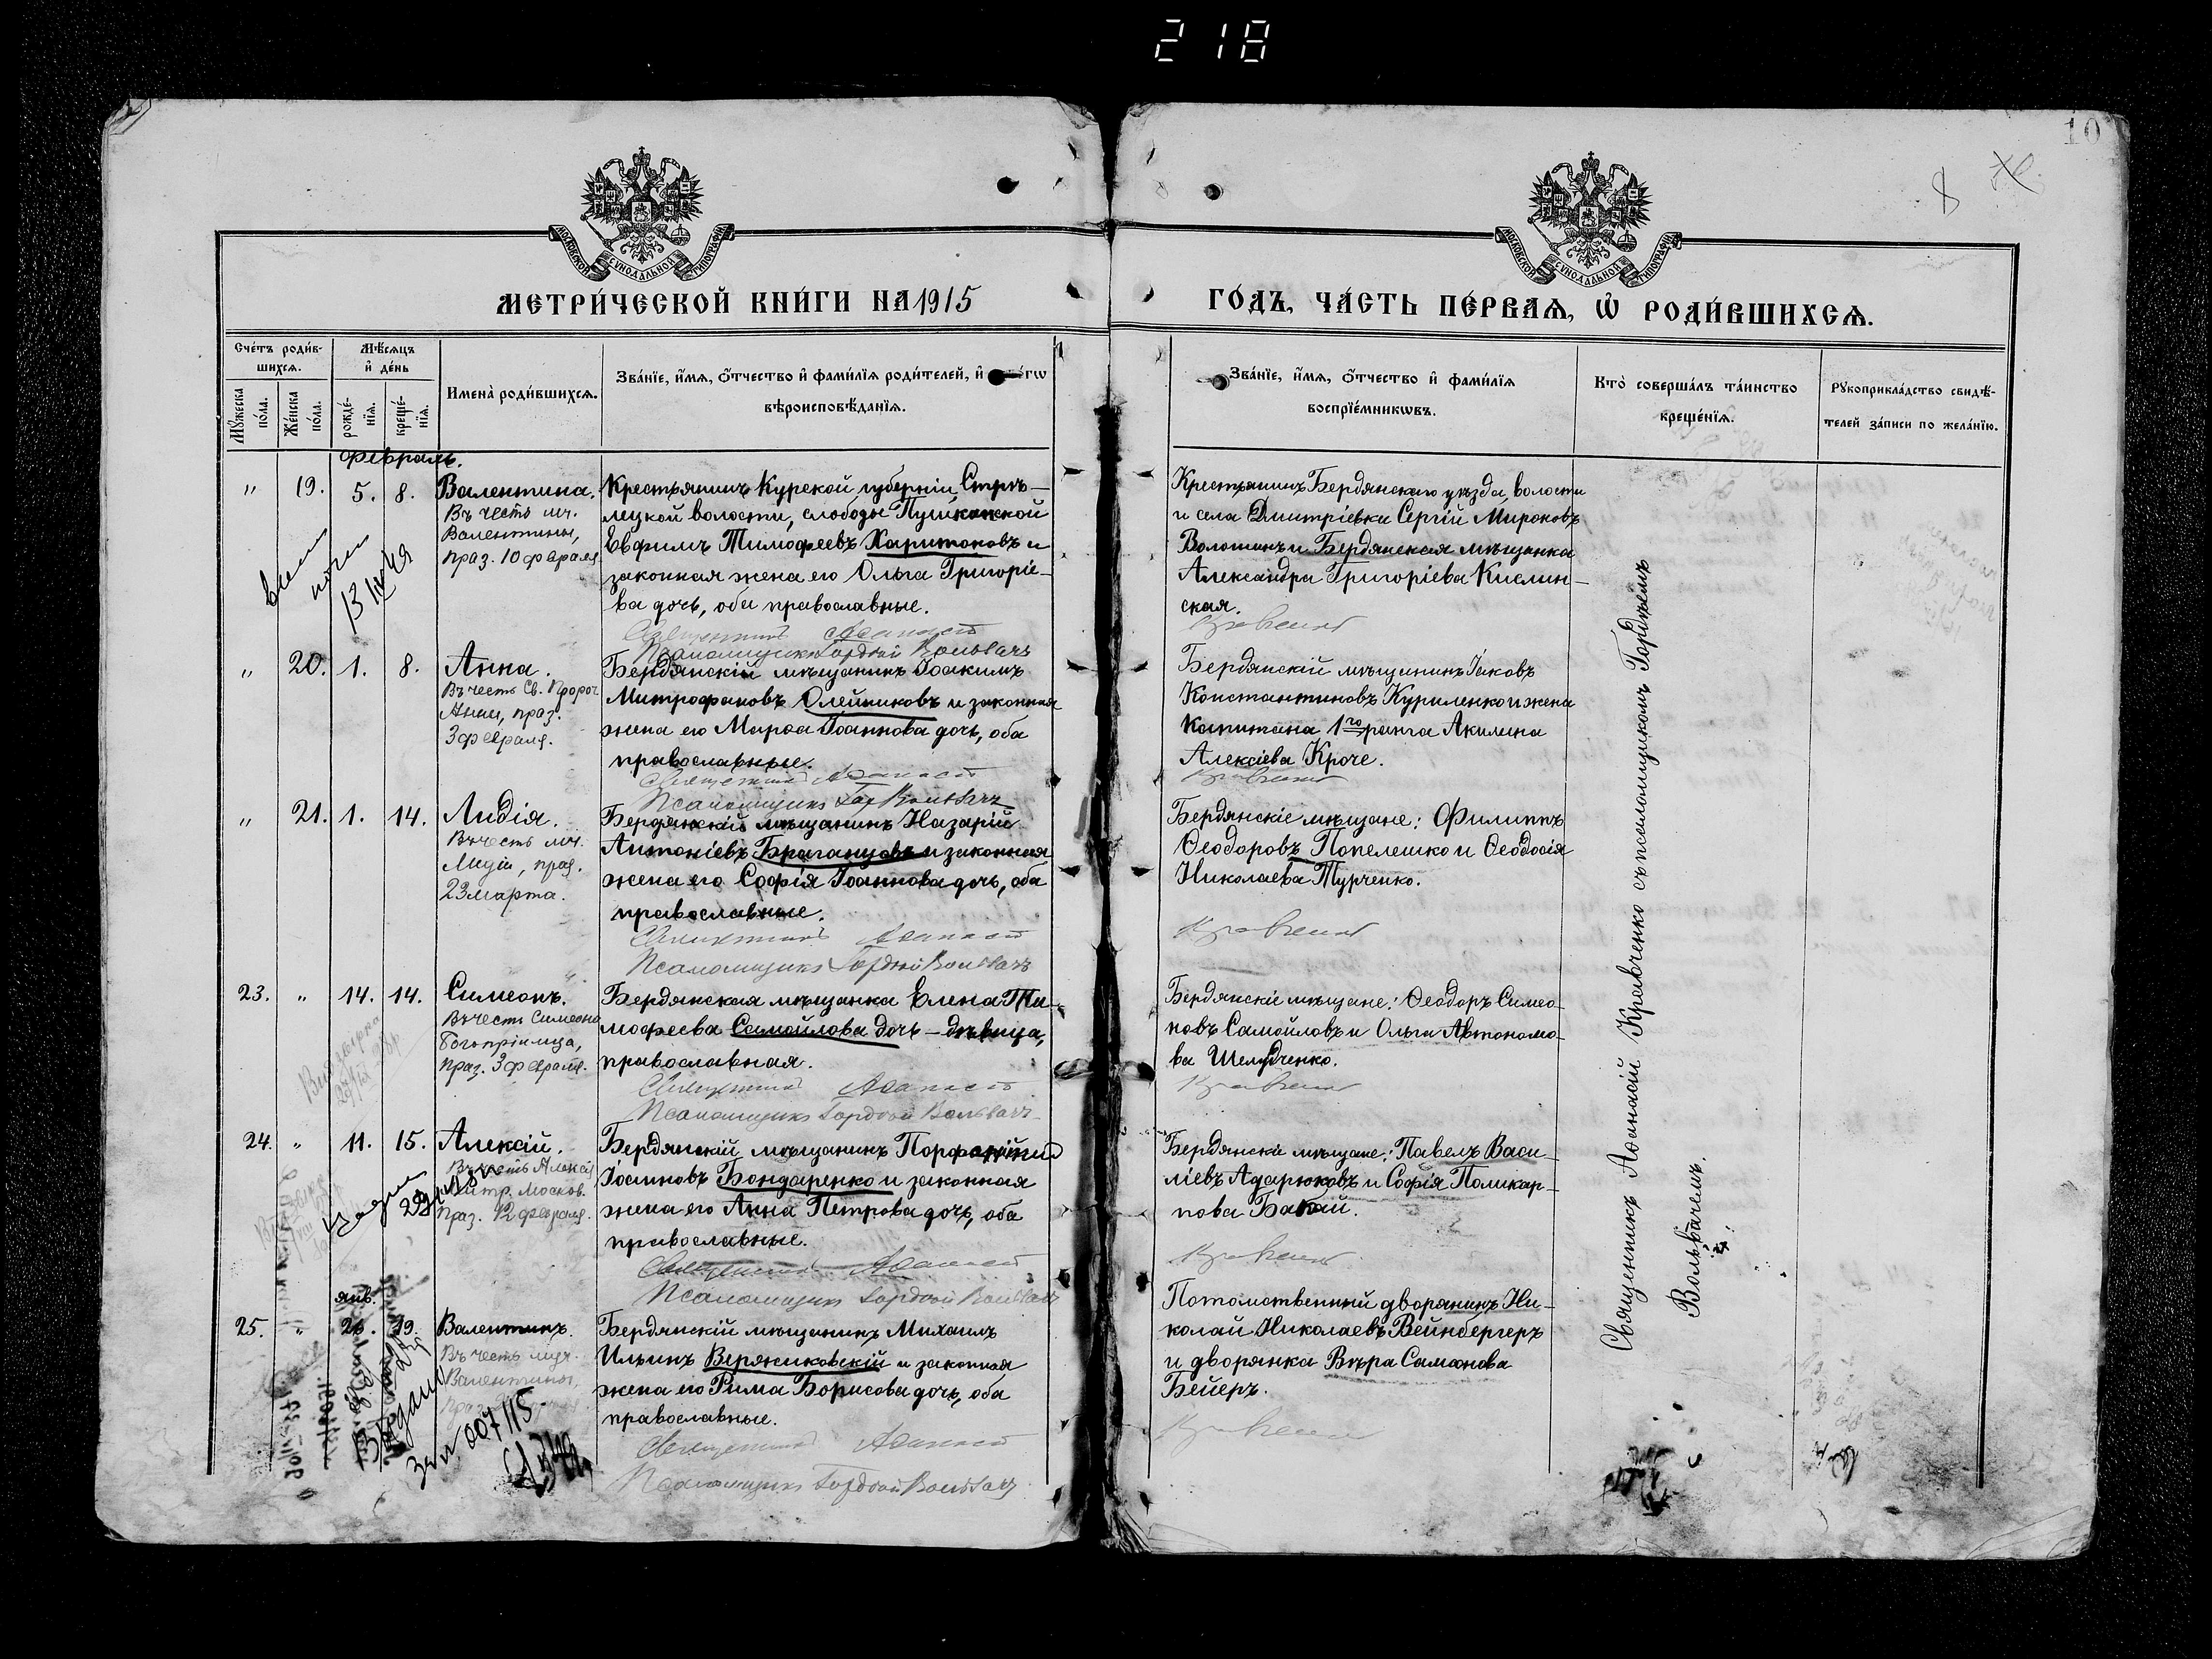 218
10
МОСКОВСКОЙ СѴНОДАЛЬНОЙ ТИПОГРАФІИ
МОСКОВСКОЙ СѴНОДАЛЬНОЙ ТИПОГРАФІИ
МЕТРИ́ЧЕСКОЙ КНИ́ГИ НА 1915
ГО́ДЪ, ЧА́СТЬ ПЕ́РВАѦ, Ѡ҆ РОДИ́ВШИХСѦ.
Сче́тъ роди́в-
шихсѧ.
Мѣ́сѧцъ
и҆ де́нь
Мꙋ́жеска
по́ла.
Же́нска
по́ла.
рожде́-
нїѧ.
креще́-
нїѧ.
Имена̀ роди́вшихсѧ.
Зва́нїе, и҆́мѧ, ѻ҆́тчество и҆ фами́лїѧ роди́телей, и҆
вѣроисповѣ́данїѧ.
Зва́нїе, и҆́мѧ, ѻ҆́тчество и҆ фами́лїѧ
воспрїе́мникѡвъ.
Кто̀ соверша́лъ та́инство
креще́нїѧ.
Рꙋкоприкла́дство свидѣ́-
телей за́писи по жела́нїю.
Февраль.
" 19. 5. 8. Валентина.
Въ честь мч.
Валентины,
праз. 10 февраля
Крестьянинъ Курской губерніи, Стрѣ-
лецкой волости, слободы Пушкарской
Евфимъ Тимофеевъ Харитоновъ и
законная жена его Ольга Григоріе-
ва дочь, оба православные.
Священникъ Аѳанасій
Псаломщикъ Гордѣй Вольвачъ
Крестьянинъ Бердянскаго уѣзда, волости
и села Дмитріевки Сергій Мироновъ
Волошинъ и Бердянская мѣщанка
Александра Григоріева Кислин-
ская.
Кравченко
" 20. 1. 8. Анна.
Въ честь Св. Пророч.
Анны, праз.
3 февраля.
Бердянскій мѣщанинъ Іоакимъ
Митрофановъ Олейниковъ и законная
жена его Марѳа Іоаннова дочь, оба
православные.
Священникъ Аѳанасій
Псаломщикъ Гор Вольвачъ
Бердянскій мѣщанинъ Іаковъ
Константиновъ Куриленко и жена
Капитана 1го ранга Акилина
Алексіева Кроче.
Кравченко
" 21. 1. 14. Лидія.
Въ честь мч.
Лидіи, праз.
23 марта.
Бердянскій мѣщанинъ Назарій
Антоніевъ Браганцовъ и законная
жена его Софія Іоаннова дочь, оба
православные.
Священникъ Аѳанасій
Псаломщикъ Гордѣй Вольвачъ
Бердянскіе мѣщане: Филиппъ
Ѳеодоровъ Попелешко и Ѳеодосія
Николаева Турченко.
Кравченко
23. " 14. 14. Симеонъ.
Въ честь Симеона
Богопріимца,
праз. 3 февраля.
Бердянская мѣщанка Елена Ти-
мофеева Самойлова дочь – дѣвица,
православная.
Священникъ Аѳанасій
Псаломщикъ Гордѣй Вольвачъ
Бердянскіе мѣщане: Ѳеодоръ Симео-
новъ Самойловъ и Ольга Автономо-
ва Шелудченко.
Кравченко
24. " 11. 15. Алексій.
Въ честь Алексія
Митр. Москов.
Праз. 12 февраля.
Бердянскій мѣщанинъ
Бондаренко и законная
жена его Анна Петрова дочь, оба
православные.
Священникъ Аѳанасій
Псаломщикъ Гордѣй Вольвачъ
Бердянскіе мѣщане: Павелъ Васи-
ліевъ Адарюковъ и Софія Поликар-
пова
Кравченко
янв.
25. " Валентинъ.
Въ честь
Валентины,
Бердянскій мѣщанинъ Михаилъ
Ильинъ Верясиковскій и законная
жена его Рима Борисова дочь, оба
православные.
Священникъ Аѳанасій
Псаломщикъ Гордѣй Вольвачъ
Потомственный дворянинъ Ни-
колай Николаевъ Вейнбергеръ
и дворянка Вѣра
Бейеръ.
Кравченко
Священникъ Аѳанасій Кравченко съ псаломщикомъ Гордѣемъ
Вольвачемъ.